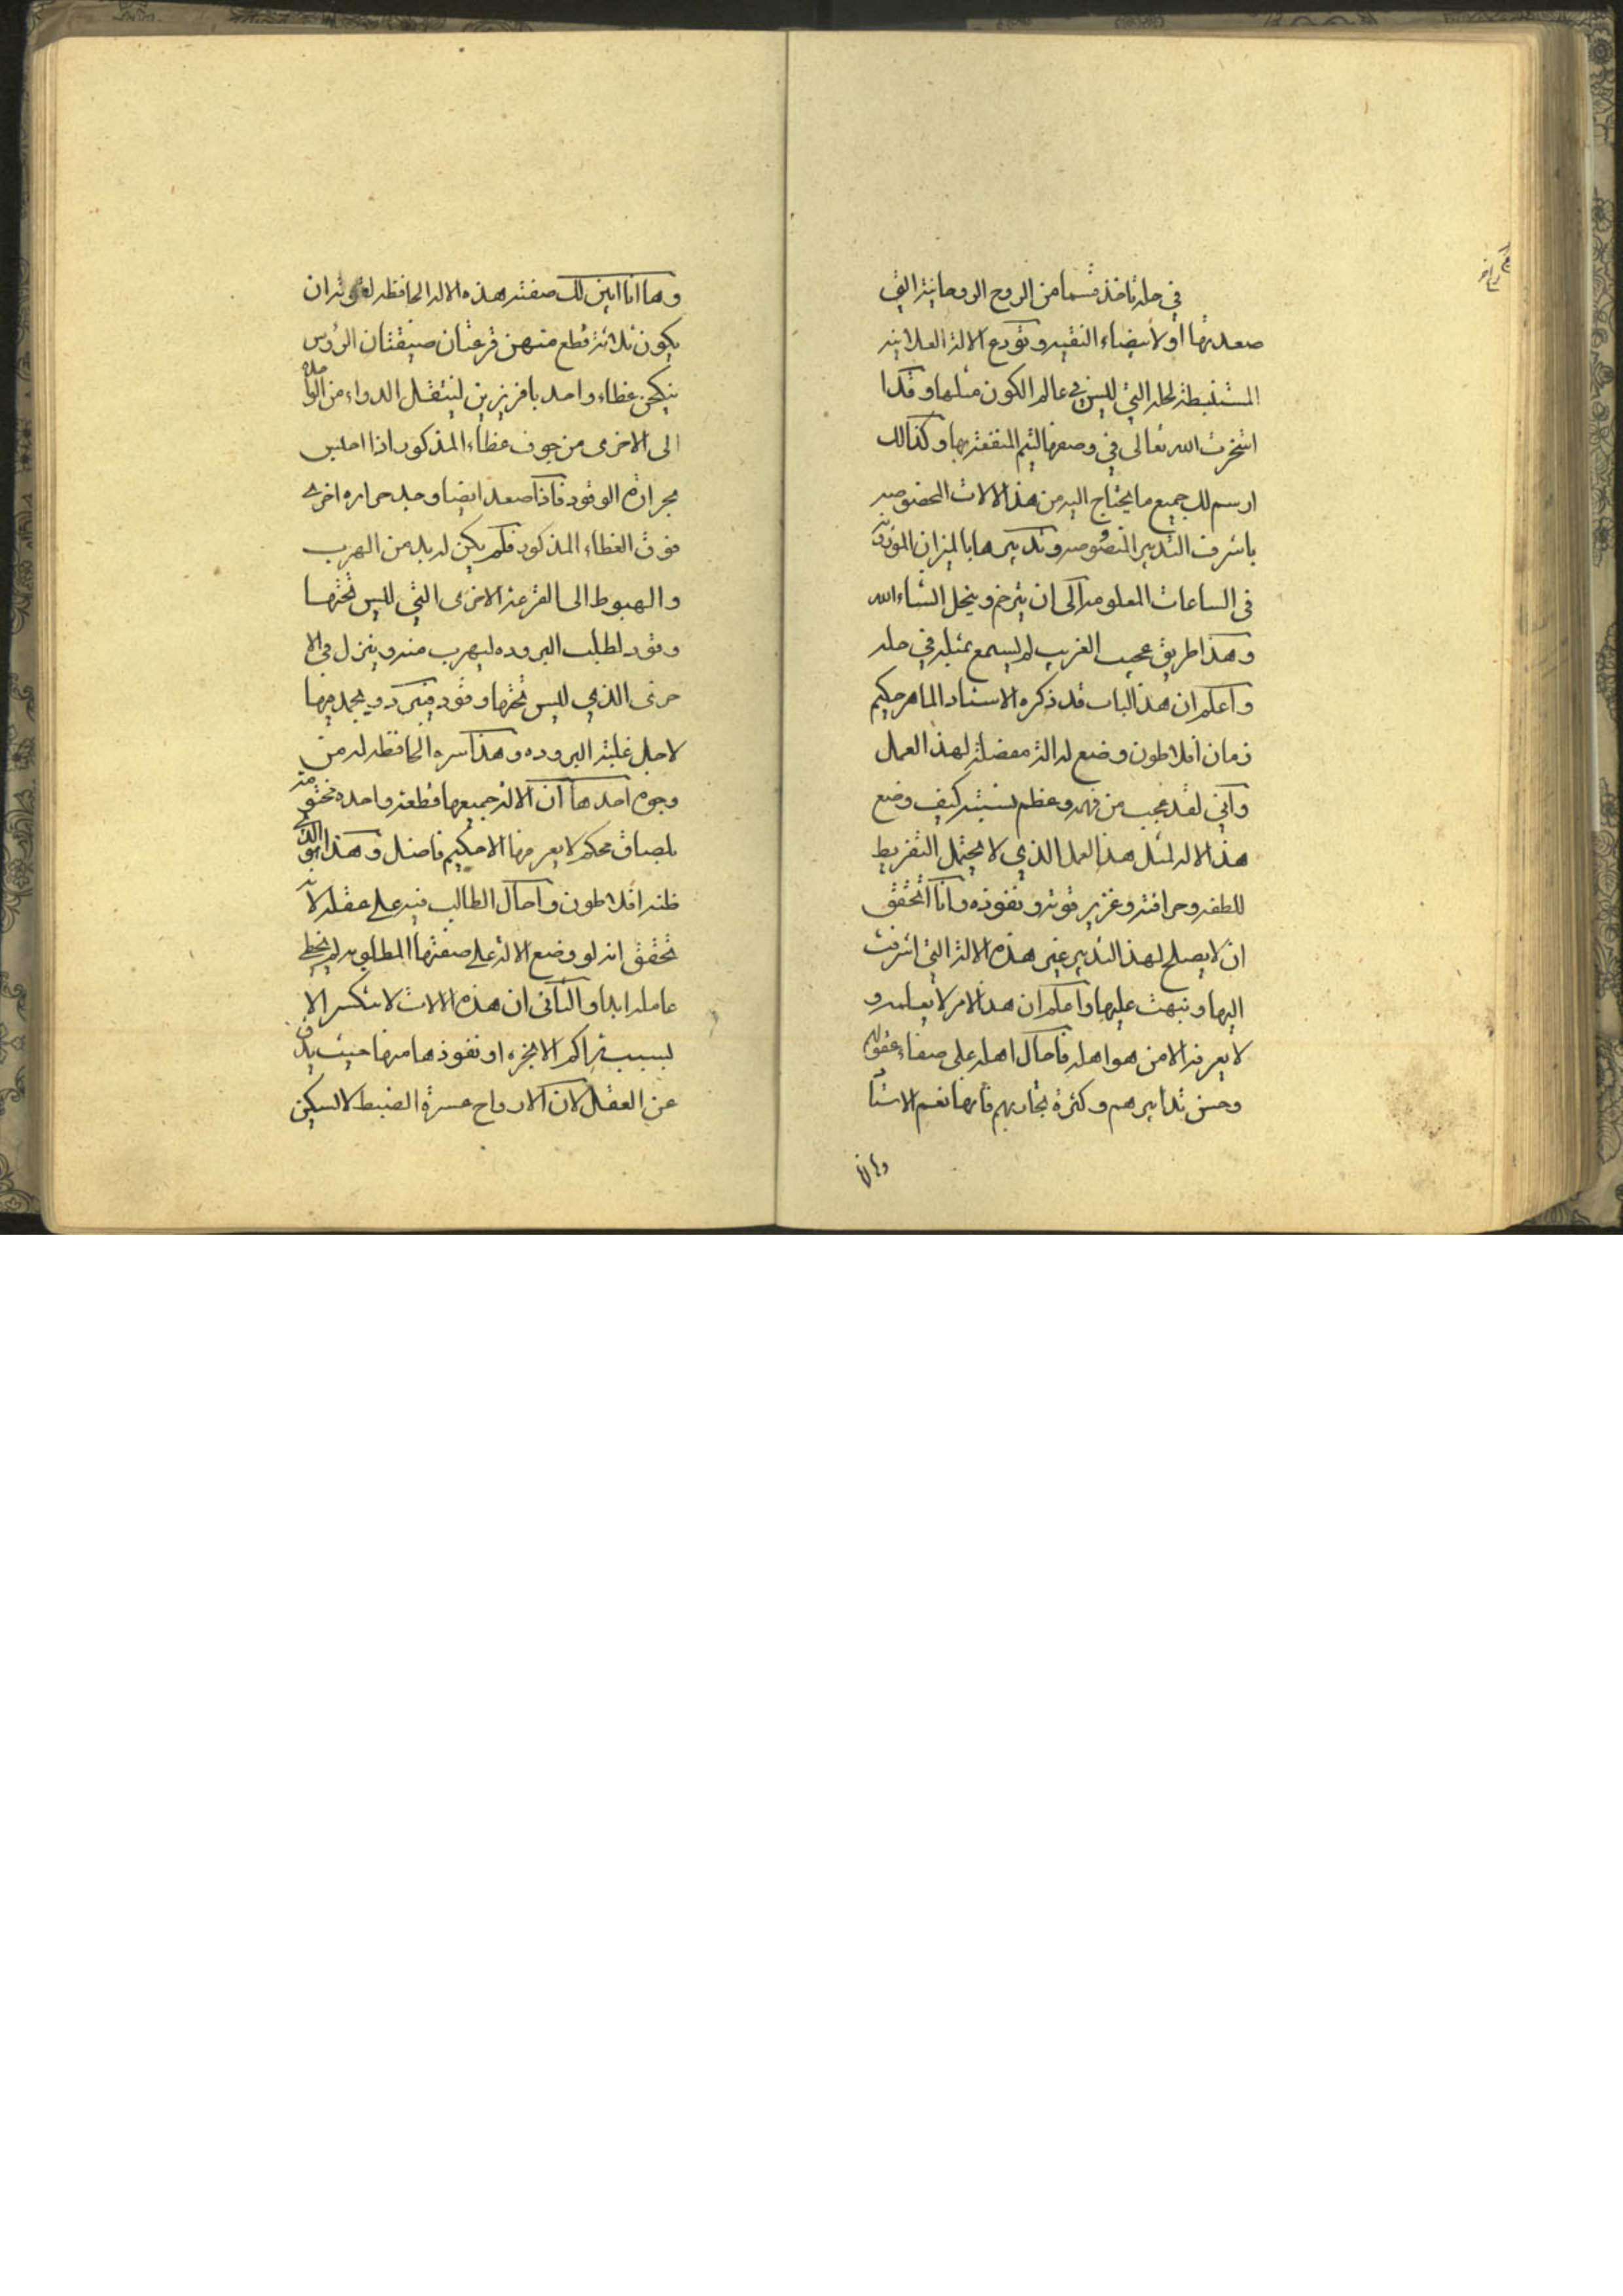 في حله تاخذ قسما من الروح الروحانية التي
صعدتها اولا بيضاء النقيه وتودع الالة العلانيه
المستنبطة لحله التي ليس في عالم الكون مثلها وقد ا
استخرت الله تعالى في وصفها ليتم المنفعة بها وكذالك
ارسم لك جميع ما يحتاج اليه من هذ الالات المخصوصه
باشرف التدبير المنصوصه وتدبيرها بالميزان
في الساعات المعلومه الى ان ترخم وينحل انشاء الله
وهذا طريق عجيب الغريب لم يسمع بمثله في حله
واعلم ان هذ الباب قد ذكره الاستاد الماهر حكيم
زمان افلاطون وضع له الة مفضلة لهذ العمل
واني لقد عجب من فهمه وعظم كيف وضع
هذ الاله لمثل هذ العمل الذي لا يحتمل التفريط
للطفه وحرافته وغزير قوته ونفوذه وانا اتحقق
ان لا يصلح لهذ التدبير غير هذه الالة التي اشرفت
اليها ونبهت عليها واعلم ان هذ الامر لا يعلمه و
لا يعرفه الا من هو اهله فاحال اهله على صفاء عقولهم
وحسن تدابيرهم وكثرة تجاربهم فانها نعم الاستا
وها انا
وها انا ابين لك صفته هذه الاله الحافظه لقوته ان
يكون ثلاثة قطع منهن قرعتان ضيقتان الرؤس
غطاء واحد بافريزين لينتقل الدواء من الواحده
الى الاخرى من جوف غطاء المذكور اذا احس
بحرارة الوقود فاذا صعد ايضا وجد حراره اخرى
فوق الغطاء المذكور فلم يكن له بد من الهرب
والهبوط الى القرعة الاخرى التي ليس تحتها
وقود لطلب البروده ليهرب منه وينزل في الا
خرى الذي ليس تحتها وقود فيبرد ويجمد فيها
لاجل غلبة البروده وهذا سره الحافظه له من
وجوه احدها ان الالة جميعها قطعة واحده مختومة
بلصاق محكم لا يعرفها الا حكيم فاضل وهذا هو الذي
ظنه افلاطون واحال الطالب فيه على عقله لانه
تحقق انه لو وضع الالة على صفتها المطلوبه لم يخطي
عامله ابدا والثاني ان هذه الالات لا تنكسر الا
بسبب تراكم الابخره او نفوذها منها حيث يدق
عن العقل لان الارواح عسرة الضبط لا لسكين